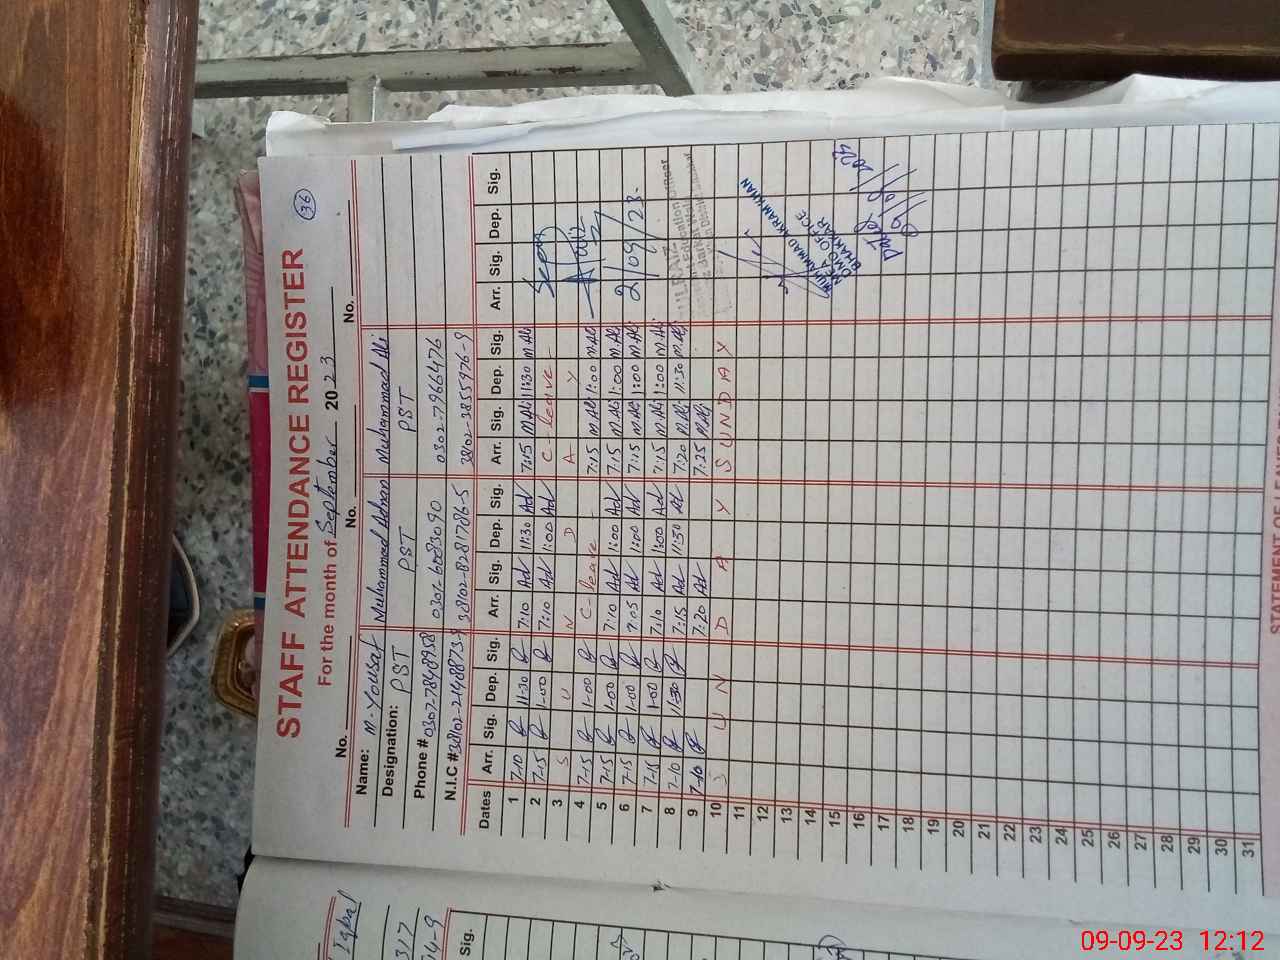 36
STAFF ATTENDANCE REGISTER
For the month of September 2023
No. No. No.
Name: M. Yousaf Muhammad Adnan Muhammad Ali
Designation: PST PST PST
Phone # 0307-7848958 0301-6083090 0302-7966476
N.I.C # 38102-8281786-5 38102-3855976-9
Dates Arr. Sig. Dep. Sig. Arr. Sig. Dep. Sig. Arr. Sig. Dep. Sig. Arr. Sig. Dep. Sig.
1 7-10 11-30 7:10 Ad 11:30 Ad 7:15 M.Ali 11:30 M.Ali
2 7-15 1-00 7:10 Ad 1:00 Ad C-leave
3 S U N D A Y
4 7-15 1-00 C-leave 7:15 M.Ali 1:00 M.Ali
5 7-15 1-00 7:10 Ad 1:00 Ad 7:15 M.Ali 1:00 M.Ali
6 7-15 1-00 7:05 Ad 1:00 Ad 7:15 M.Ali 1:00 M.Ali
7 7-15 1-00 7:10 Ad 1:00 Ad 7:15 M.Ali 1:00 M.Ali
8 7-10 11-30 7:15 Ad 11:30 Ad 7:20 M.Ali 11:30 M.Ali
9 7-10 7:20 Ad 7:25 M.Ali
10 S U N D A Y S U N D A Y
11
12
13
14
15
16
17
18
19
20
21
22
23
24
25
26
27
28
29
30
31
2/09/23
Education Officer
MUHAMMAD AKRAM KHAN
MEA
DMO OFFICE
BHAKKAR
Dated 09/09/2023
Iqbal
317
14-9
Sig.
09-09-23 12:12